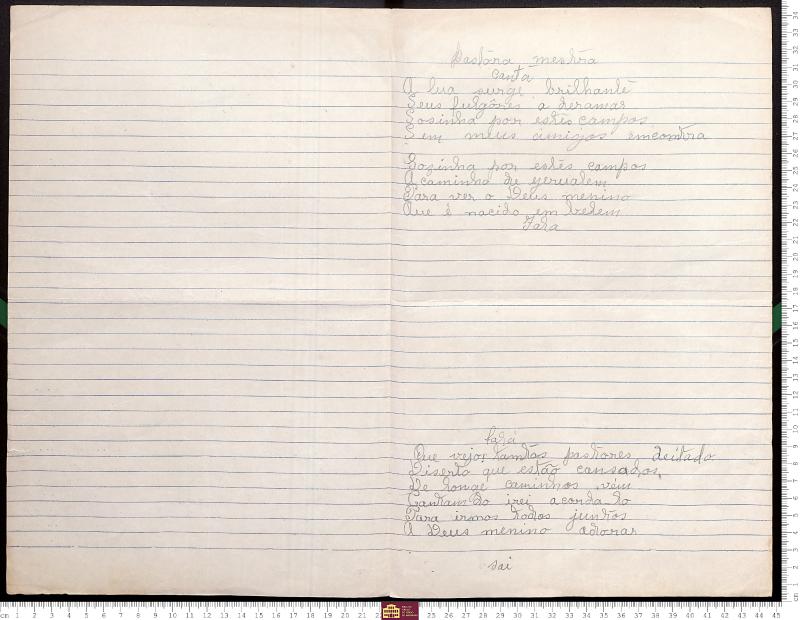 Pastôra mestra
Canta
A lua surge brilhante
Seus fulgôres a deramar
Sosinha por estês campos
Sem meus amigos emcontra
Sozinha por estês campos
A caminho de yerusalem
Para ver o Deus menino
Que é nacido em belem
Fala
Fala
Que vejo; tamtas pastores deitado
Diserto que estão cansados,
De longe caminhos vem
Cantando irei acorda-lo
Para irmos todos juntos
A Deus menino adorar
sai